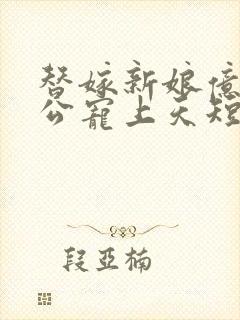 替嫁新娘億
公寵上天短
段亞楠